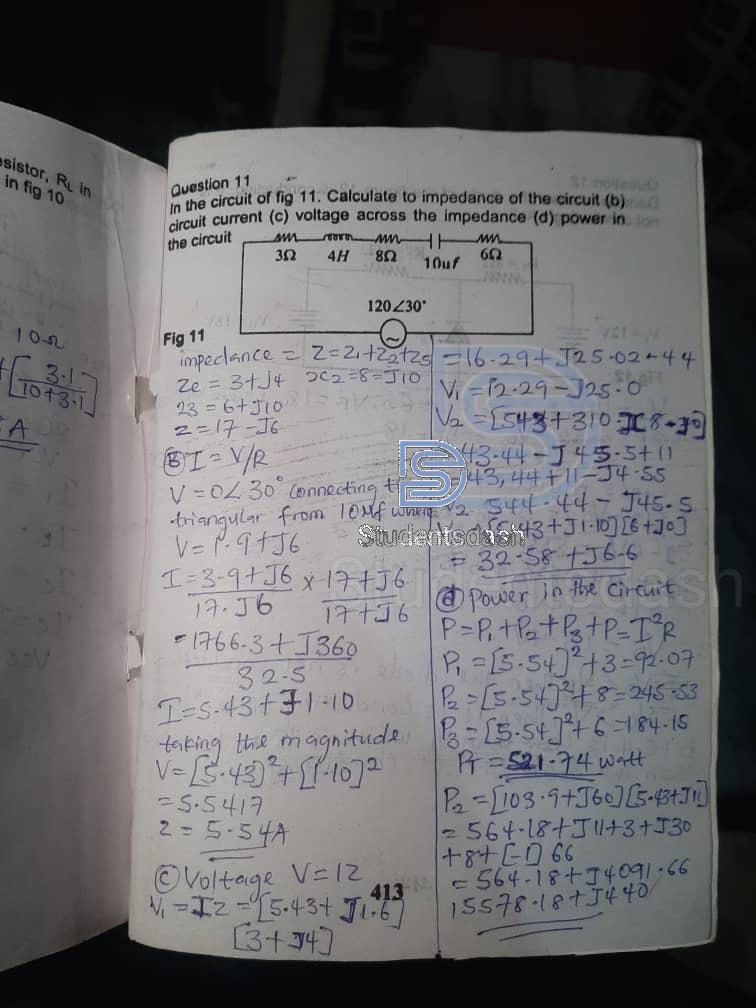 esistor, RL in
in fig 10
10Ω
+[3.1
10+3.1]
A
Question 11
In the circuit of fig 11. Calculate to impedance of the circuit (b)
circuit current (c) voltage across the impedance (d) power in
the circuit
3Ω 4H 8Ω 10uf 6Ω
120∠30°
Fig 11
impedance = Z=Z1+Z2+Z3
Ze = 3+J4 xc2=8=J10
23 = 6+J10
z=17-J6
(B) I = V/R
V=0∠30° connecting t
triangular from 10Mf where
V=1.9+J6
I=3.9+J6 × 17+J6
17.J6 17+J6
=1766.3+J360
32.5
I=5.43+J1.10
taking the magnitude
V=[5.43)²+[1.10]²
=5.5417
2= 5.54A
(C) Voltage V=12
V1=IZ=[5.43+J1.6]
[3+J4]
=16.29+J25.02-44
V1=12.29-J25.0
V2=[543+310 8-J0]
=43.44-J45.5+11
=43,44+11-J4.55
V2 544.44-J45.5
[5.43+J1.10][6+J0]
= 32.58+J6.6
(d) power in the circuit
P=P1+P2+P3+P=I²R
P1=[5.54]²+3=92.07
P2=[5.54]²+8=245.53
P3=[5.54]²+6=184.15
PT=521.74 watt
P2=[103.9+J60][5.43+J11]
=564.18+J11+3+J30
+8+[-1]66
=564.18+J4091.66
15578.18+J440
413
Studentsdash
Studentsdash